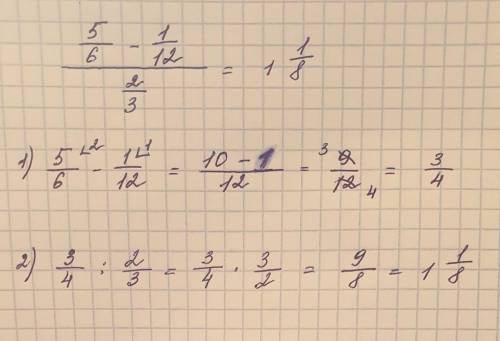 (5/6 - 1/12) / (2/3) = 1 1/8
1) 5/6 ⌊2 - 1/12 ⌊1 = (10 - 1)/12 = 3 9/12 4 = 3/4
2) 3/4 : 2/3 = 3/4 · 3/2 = 9/8 = 1 1/8